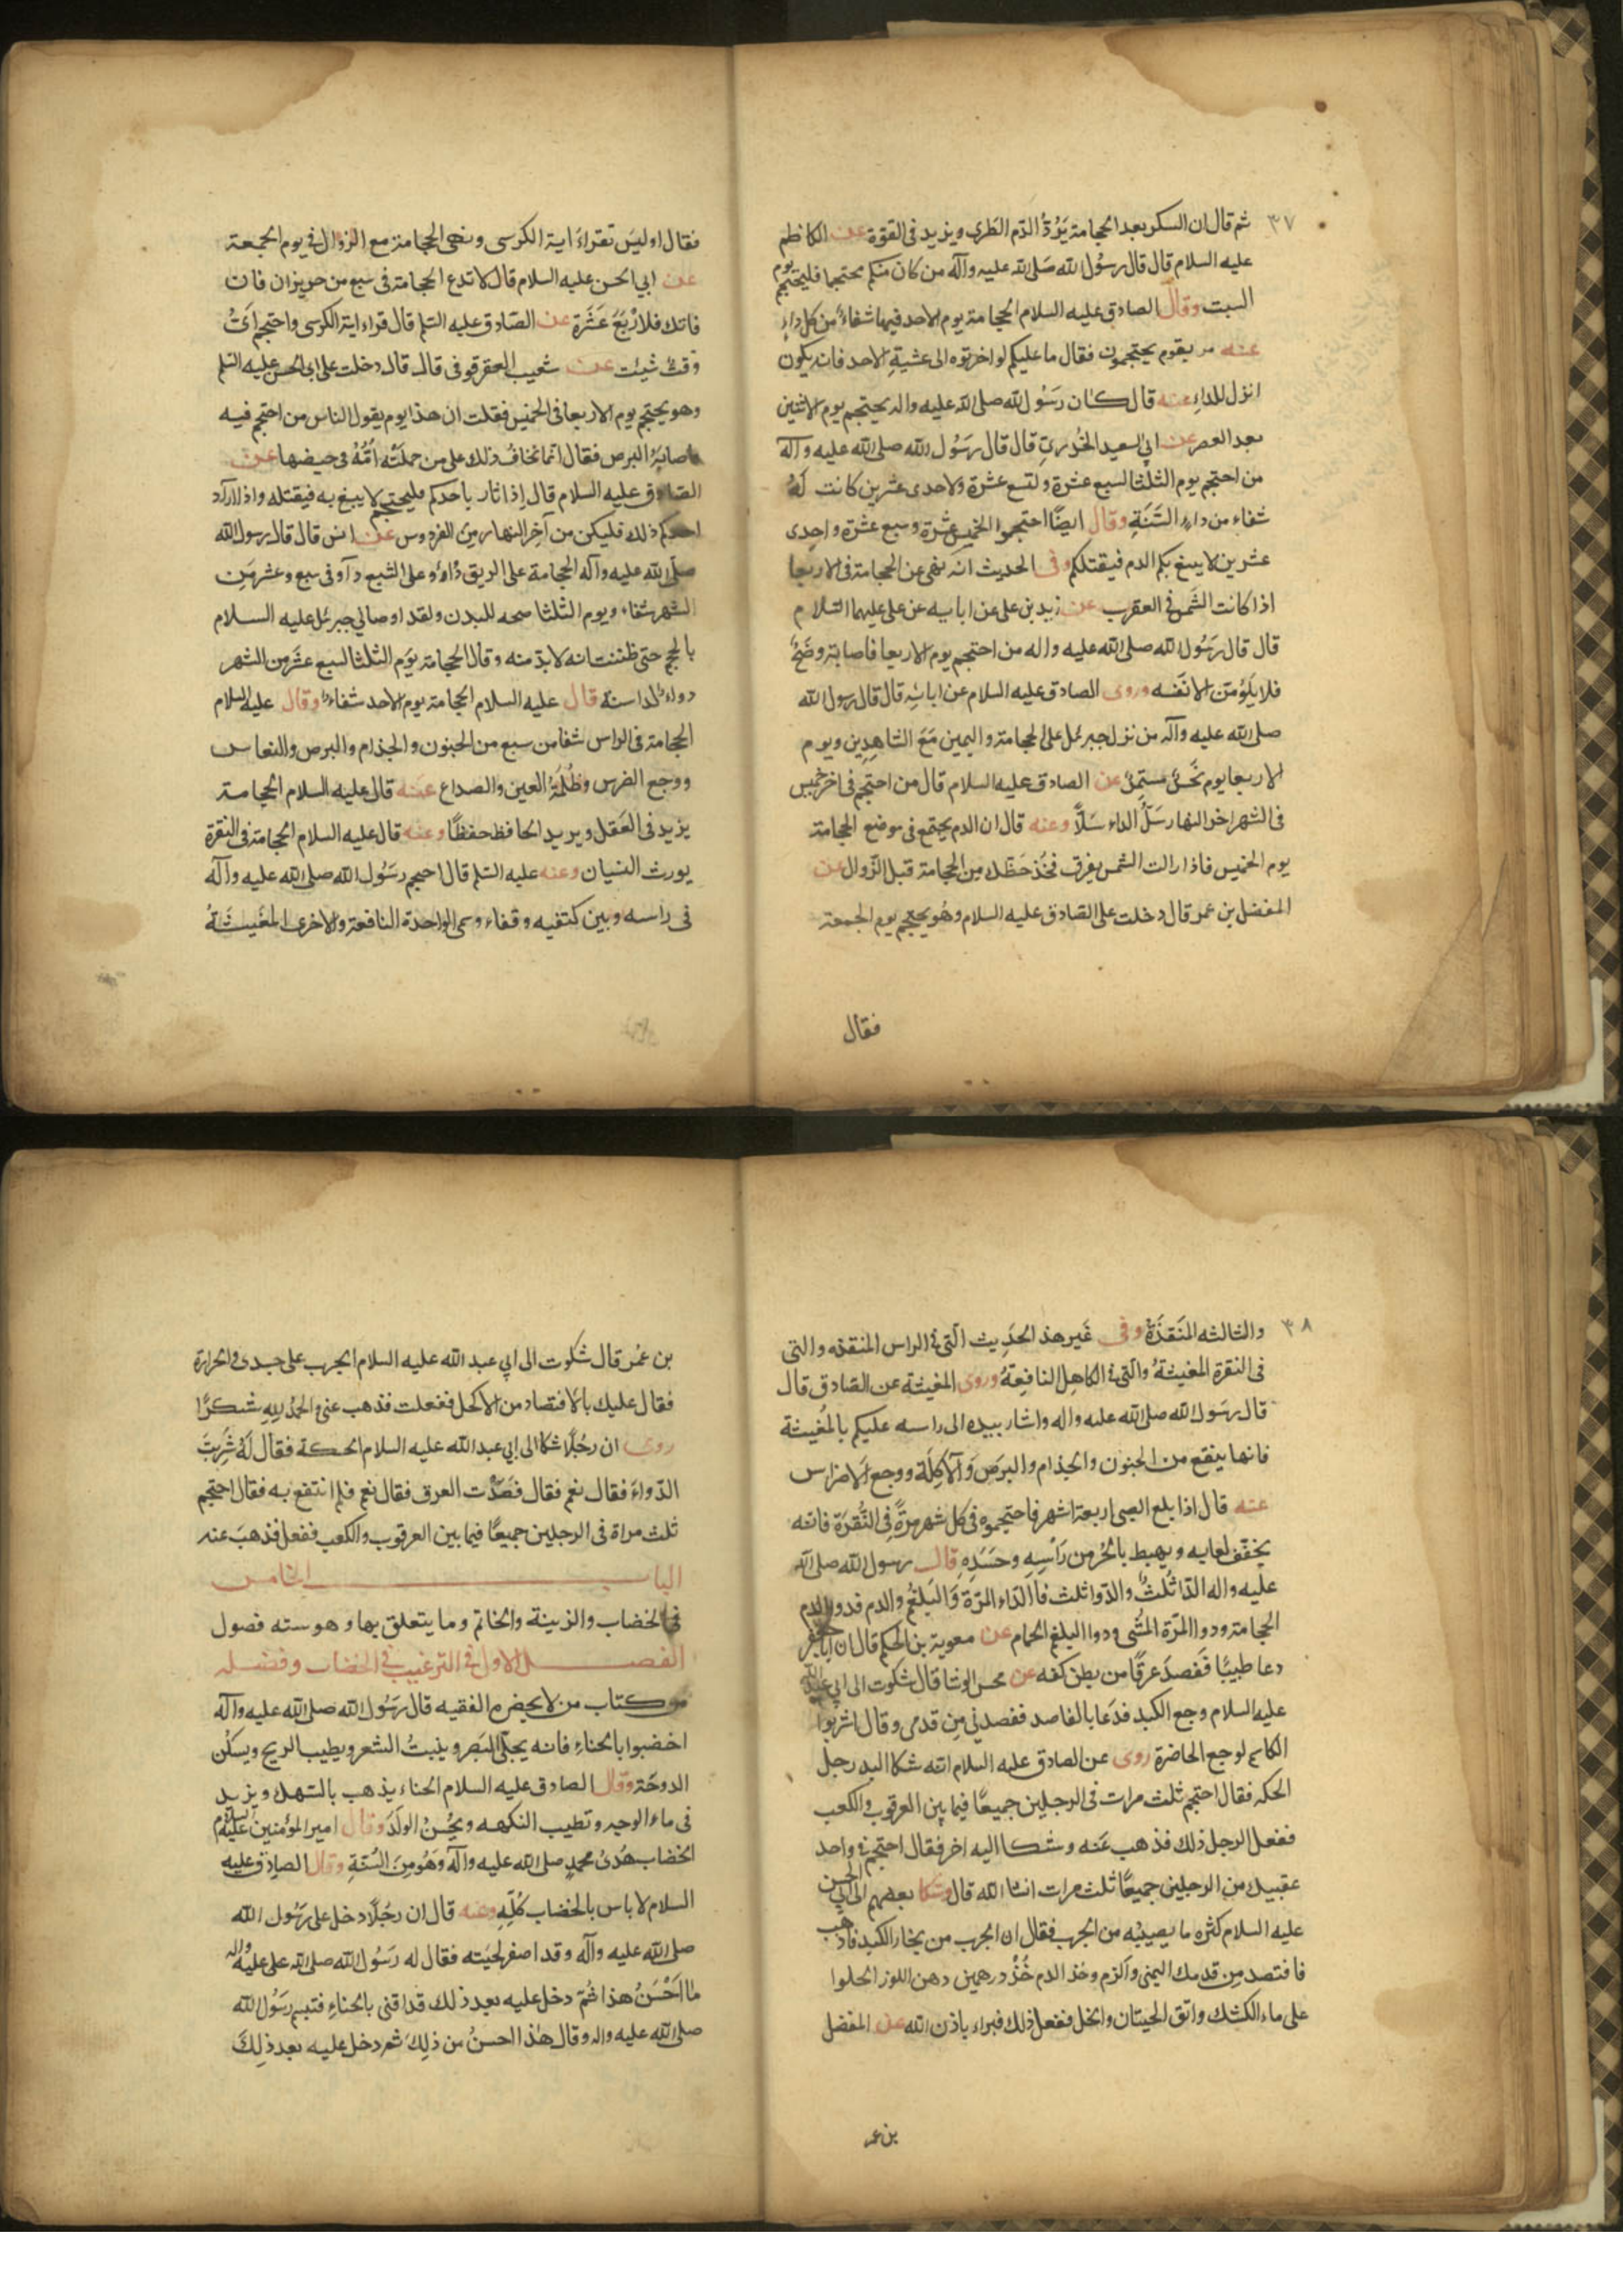 ٣٧
ثم قال ان السكر بعد الحجامة يَرُدُّ الدّم الطَرى ويزيد فى القوّة عن الكاظم
عليه السلام قال قال رسُول الله صَلى الله عليه وآله من كان منكم محتجما فليحتجم يوم
السبت وقال الصادق عليه السلام الحجامة يوم الاحد فيها شفاءٌ من كل داءٍ
عنه مر بقوم يحتجمون فقال ما عليكم لو اخرتوه الى عشية الاحد فانه يكون
انزل للداءِ عنه قال كان رسُول الله صلى الله عليه واله يحتجم يوم الاثنين
بعد العصر عن ابى سعيد الخُدرىِّ قال قال رسُول الله صلى الله عليه وآله
من احتجم يوم الثلثا لسبع عشرة ولتسع عشرة ولاحدى عشرين كانت لَهُ
شفاء من داءِ السَّنَةِ وقال ايضًا احتجموا الخميس عشرة وسبع عشرة واحدى
عشرين لا يبيغ بكم الدم فيقتلكم وفى الحديث انه نهى عن الحجامة فى الاربعا
اذا كانت الشمس فى العقرب عن زيد بن على عن ابابيه عن على عليهما السّلام
قال قال رسُول الله صلى الله عليه واله من احتجم يوم الاربعا فاصابته وضَحٌ
فلا يَلُوْمَنّ الا نَفْسه وروى الصادق عليه السلام عن ابائه قال قال رسول الله
صلى الله عليه وآله من نزل جبرئل على الحجامة واليمين مَعَ الشاهِدِين ويوم
الاربعا يوم نَحْسٌ مستمرٌ عن الصادق عليه السلام قال من احتجم فى اخر خميس
فى الشهر اخر النهار سَلَّ الداء سَلًّا وعنه قال ان الدم يجتمع فى موضع الحجامة
يوم الخميس فاذا زالت الشمس يفرق فخُذ حَظّك مِن الحجامة قبل الزّوال عن
المفضل بن عمر قال دخلت على الصّادق عليه السلام وهُو يحتجم يوم الجمعة
فقال
فقال اوليسَ تقراءَ اية الكرسى ونهى الحجامة مع الزوال فى يوم الجمعة
عن ابي الحسن عليه السلام قال لا تدع الحجامة فى سبع من حويزان فان
فاتك فلارْبَعَ عَشَرَة عن الصّادق عليه السّلم قال قراء اية الكرسى واحتجم اىَّ
وَقتٌ شيئت عن شعيب العقرقوفى قال قال دخلت على ابى الحسن عليه السّلم
وهو يحتجم يوم الاربعا فى الحميس فقلت ان هذا يوم يقول الناس من احتجم فيه
اصابَهُ البرص فقال انما نخافُ ذلك على من حملَتْه اُمّهُ فى حيضها عن
الصّادق عليه السلام قال اِذا ثار باحدكم فليحتجم لا يبيغ به فيقتله واذا اراد
احدكم ذلك فليكن من آخِر النهار مِن الفردوس عن انس قال قال رسول الله
صلّى الله عليه وآله الحجامة على الريق دُاؤ وعلى الشبع دآو فى سبع وعشر مِن
الشهر شفاء ويوم الثلثا صحه للبدن ولقد اوصاني جبرئل عليه السلام
بالحجم حتى ظننت انه لابدّ منه وقال الحجامة يوَم الثلثا لسبع عشر من الشهر
دواءٌ لداسنة قال عليه السلام الحجامة يوم الاحد شفاءٌ وقال عليه السلام
الحجامة فى الراس شفا من سبع من الجنون والجذام والبرص والنعاس
ووجع الضرس وظُلْمَةُ العين والصداع عنه قال عليه السلام الحجامة
يزيد فى العَقل ويريد الحافظ حفظًا وعنه قال عليه السلام الحجامة فى النقرة
يورث النسيان وعنه عليه السّلم قال احجم رَسُول الله صلى الله عليه وآله
فى راسه وبين كتفيه وقفاء وسمى الواحدة النافعة والاخرى المغَيثَةُ
٣٨
والثالثه المنَقذَة وفى غَير هذ الحَدِيث الّتى فى الراس المنقذه والتى
فى النقرة المغيثةُ والّتى فى الكاهِل النافِعةُ وروى المغيثة عن الصّادق قال
قال رسَول الله صلى الله عليه واله واشار بيده الى راسه عليكم بالمُغيثة
فانها ينقع من الجنون والجذام والبرَص وَالآكِلَة ووجع الاضراس
عنه قال اذا بلع الصبى اربعة اشهر فاحتجموه فى كل شهر مرةً فِى النُّقرَة فانه
يخفّف لعابه ويهبط بالحُر من رَأْسِهِ وجَسَدِهِ قال رسول الله صلى الله
عليه واله الدّا ثَلثٌ والدّوا ثلث فا الدّاء المرّة وَالبَلغُم والدم فدوا الدم
الحجامة ودوا المرّة المشْى ودوا البلغم الحمام عن معوية بن الحكم قال ان ابا جعفر
دعا طبيبًا فَفصدَ عرقًا من بطن كفه عن محسن الوشا قال شكوت الى ابى عبد الله
عليه السلام وجع الكبد فدَعَا بالفاصد ففصدنى مِن قدمى وقال اشربوا
الكاسم لوجع الخاضرة روى عن الصادق عليه السلام انّه شكا اليه رجل
الحكه فقال احتجم ثلث مرات فى الرجلين جميعًا فيما بين العرقوب والكعب
ففعل الرجل ذلك فذهب عَنه وشكا اليه اخر فقال احتجم فى واحد
عقبيك من الرجلين جميعًا ثلث مرات انشا الله قال وشكا بعضهم الى ابى الحسن
عليه السلام كثره ما يصيبه من الجرب فقال ان الجرب من بخار الكبد فاذهب
فافتصد مِن قدمك اليمنى وآلزم وخذ الدم خُذْ درهمين دهن اللوز الحلوا
على ماء الكشك واتق الحيتان والخل ففعل ذلك فبراء باذن الله عن المفضل
بن عمر
بن عُمر قال شكوت الى ابي عبد الله عليه السلام الجرب على جسدى والحرارة
فقال عليك بالافتصاد من الاكحل ففعلت فذهب عنى والحمُد للهِ شكرًا
روى ان رجُلًا شكا الى ابي عبد الله عليه السلام الحكة فقال لَهُ شَرِبتَ
الدّواءَ فقال نعم فقال فَصَدْت العرق فقال نعم فلم انتفع به فقال احتجم
ثلث مراة فى الرجلين جميعًا فيما بين العرقوب والكعب ففعل فذهبَ عنه
الباب الثامن
فى الخضاب والزينة والخاتم وما يتعلق بها وهو سته فصول
الفصل الاول فى الترغيب فى الخضاب وفضله
من كتاب من لا يحضره الفقيه قال رسُول الله صلى الله عليه وآله
اخضبوا بالحناءِ فانه يجلى البَصَر وينبتُ الشعر ويطيب الريح ويسكن
الدوحَة وقال الصادق عليه السلام الحناء يذهب بالسّهك ويزيد
فى ماء الوجه وتطيب النكهه ويحُسنُ الولَدَ وقال امير المؤمنين عليه السلم
الخضاب هُدىُ محمدٍ صلى الله عليه وآله وَهُو مِنَ السُّنةِ وقال الصادق عليه
السلام لا باس بالخضاب كُلّهِ وعنه قال ان رجُلًا دخل على رسُول الله
صلى الله عليه وآله وقد اصفر لحيَته فقال له رَسُول الله صلى الله على عليه واله
ما اَحْسَنُ هذا ثمّ دخل عليه بعد ذلك قد اقنى بالحناءِ فتبسم رسُول الله
صلى الله عليه واله وقال هٰذا احسنُ من ذلِك ثم دخل عليه بعد ذلِكَ